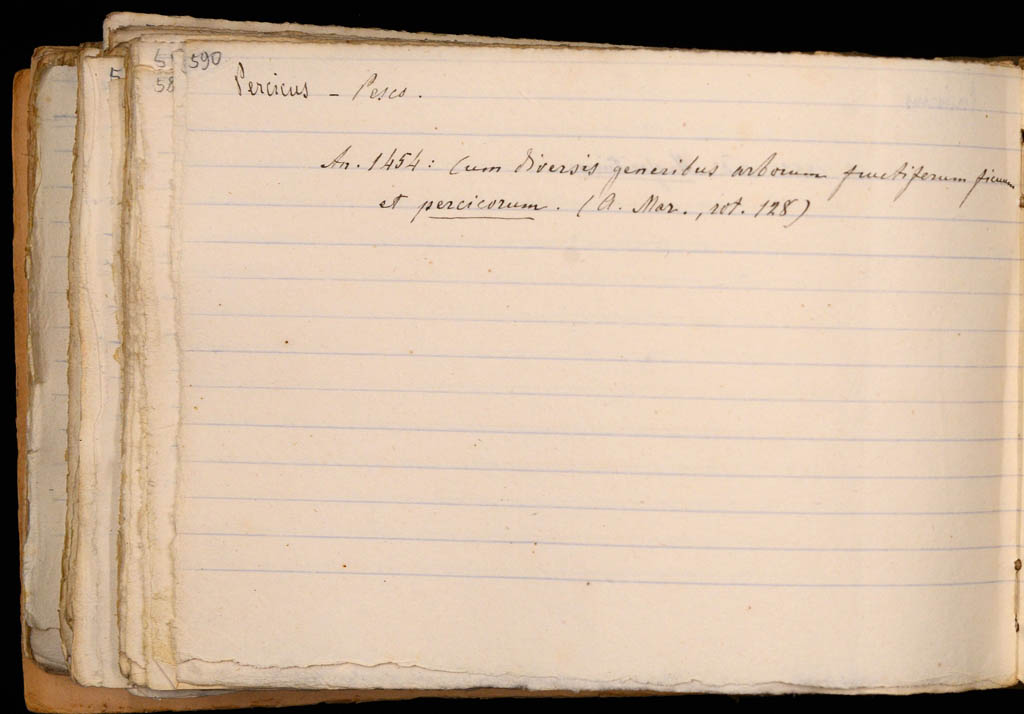 590
51
58
5
Percicus - Pesco.
An. 1454: Cum diversis generibus arborum fructiferum ficuum
et percicorum. (A. Mar., rot. 128)